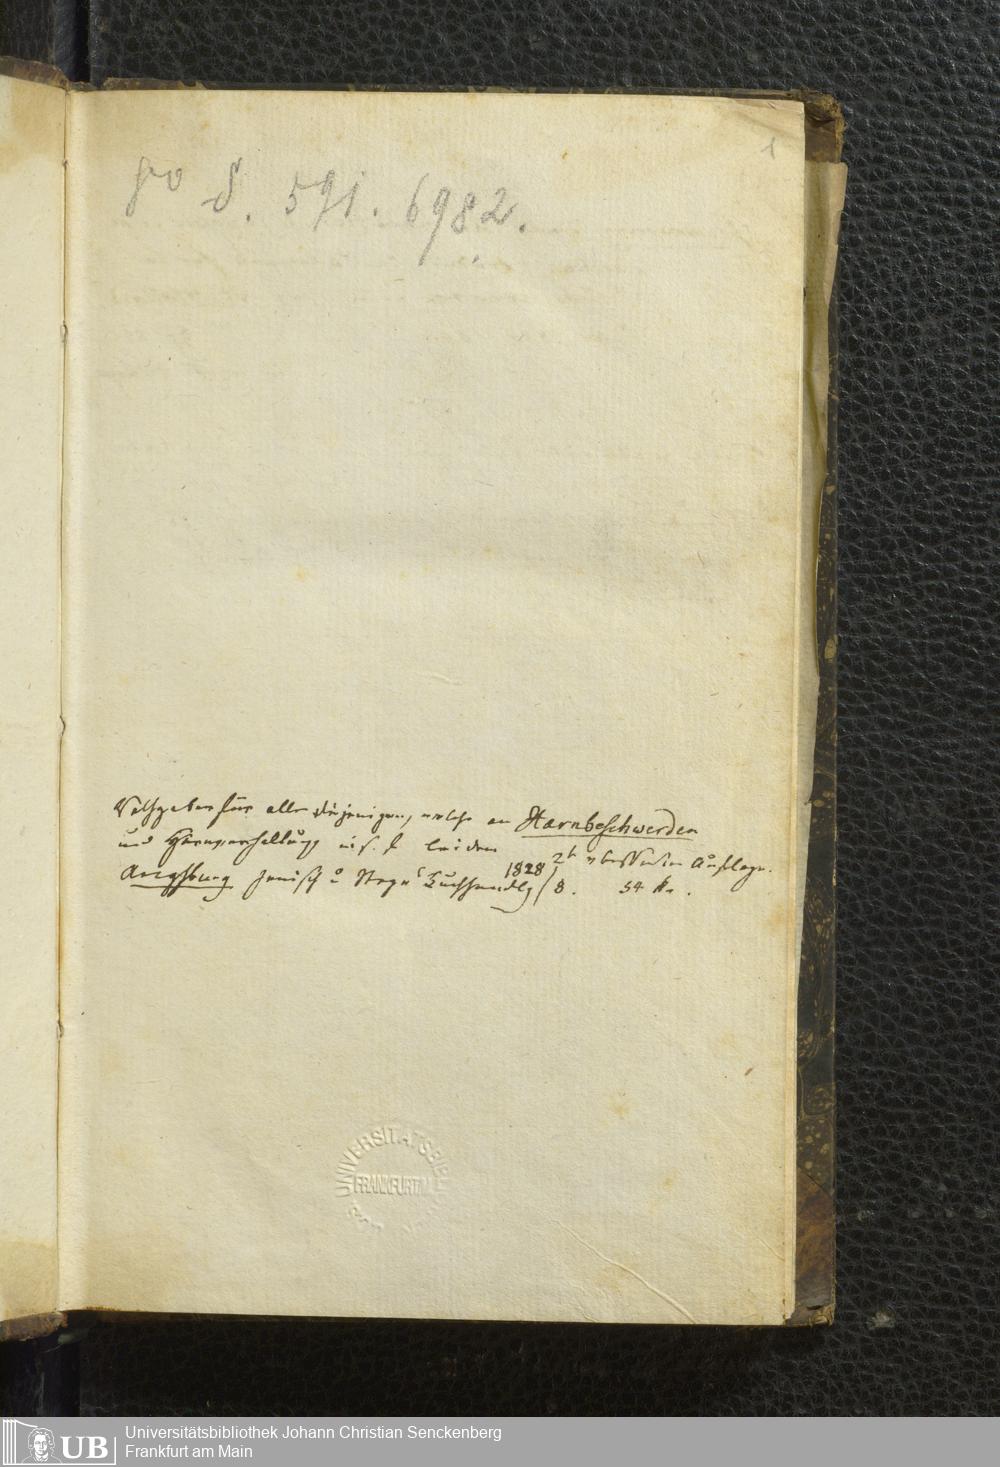 1
8vo S. 591. 6982.
Rathgeber für alle diejenigen, welche an Harnbeschwerden
und Harnverhaltung leiden
1828 2te verbesserte Auflage.
Augsburg Jenisch u Stage Buchhandlg 8. 54 kr.
UNIVERSITÄTSBIBL
FRANKFURT/M
Universitätsbibliothek Johann Christian Senckenberg
Frankfurt am Main
UB